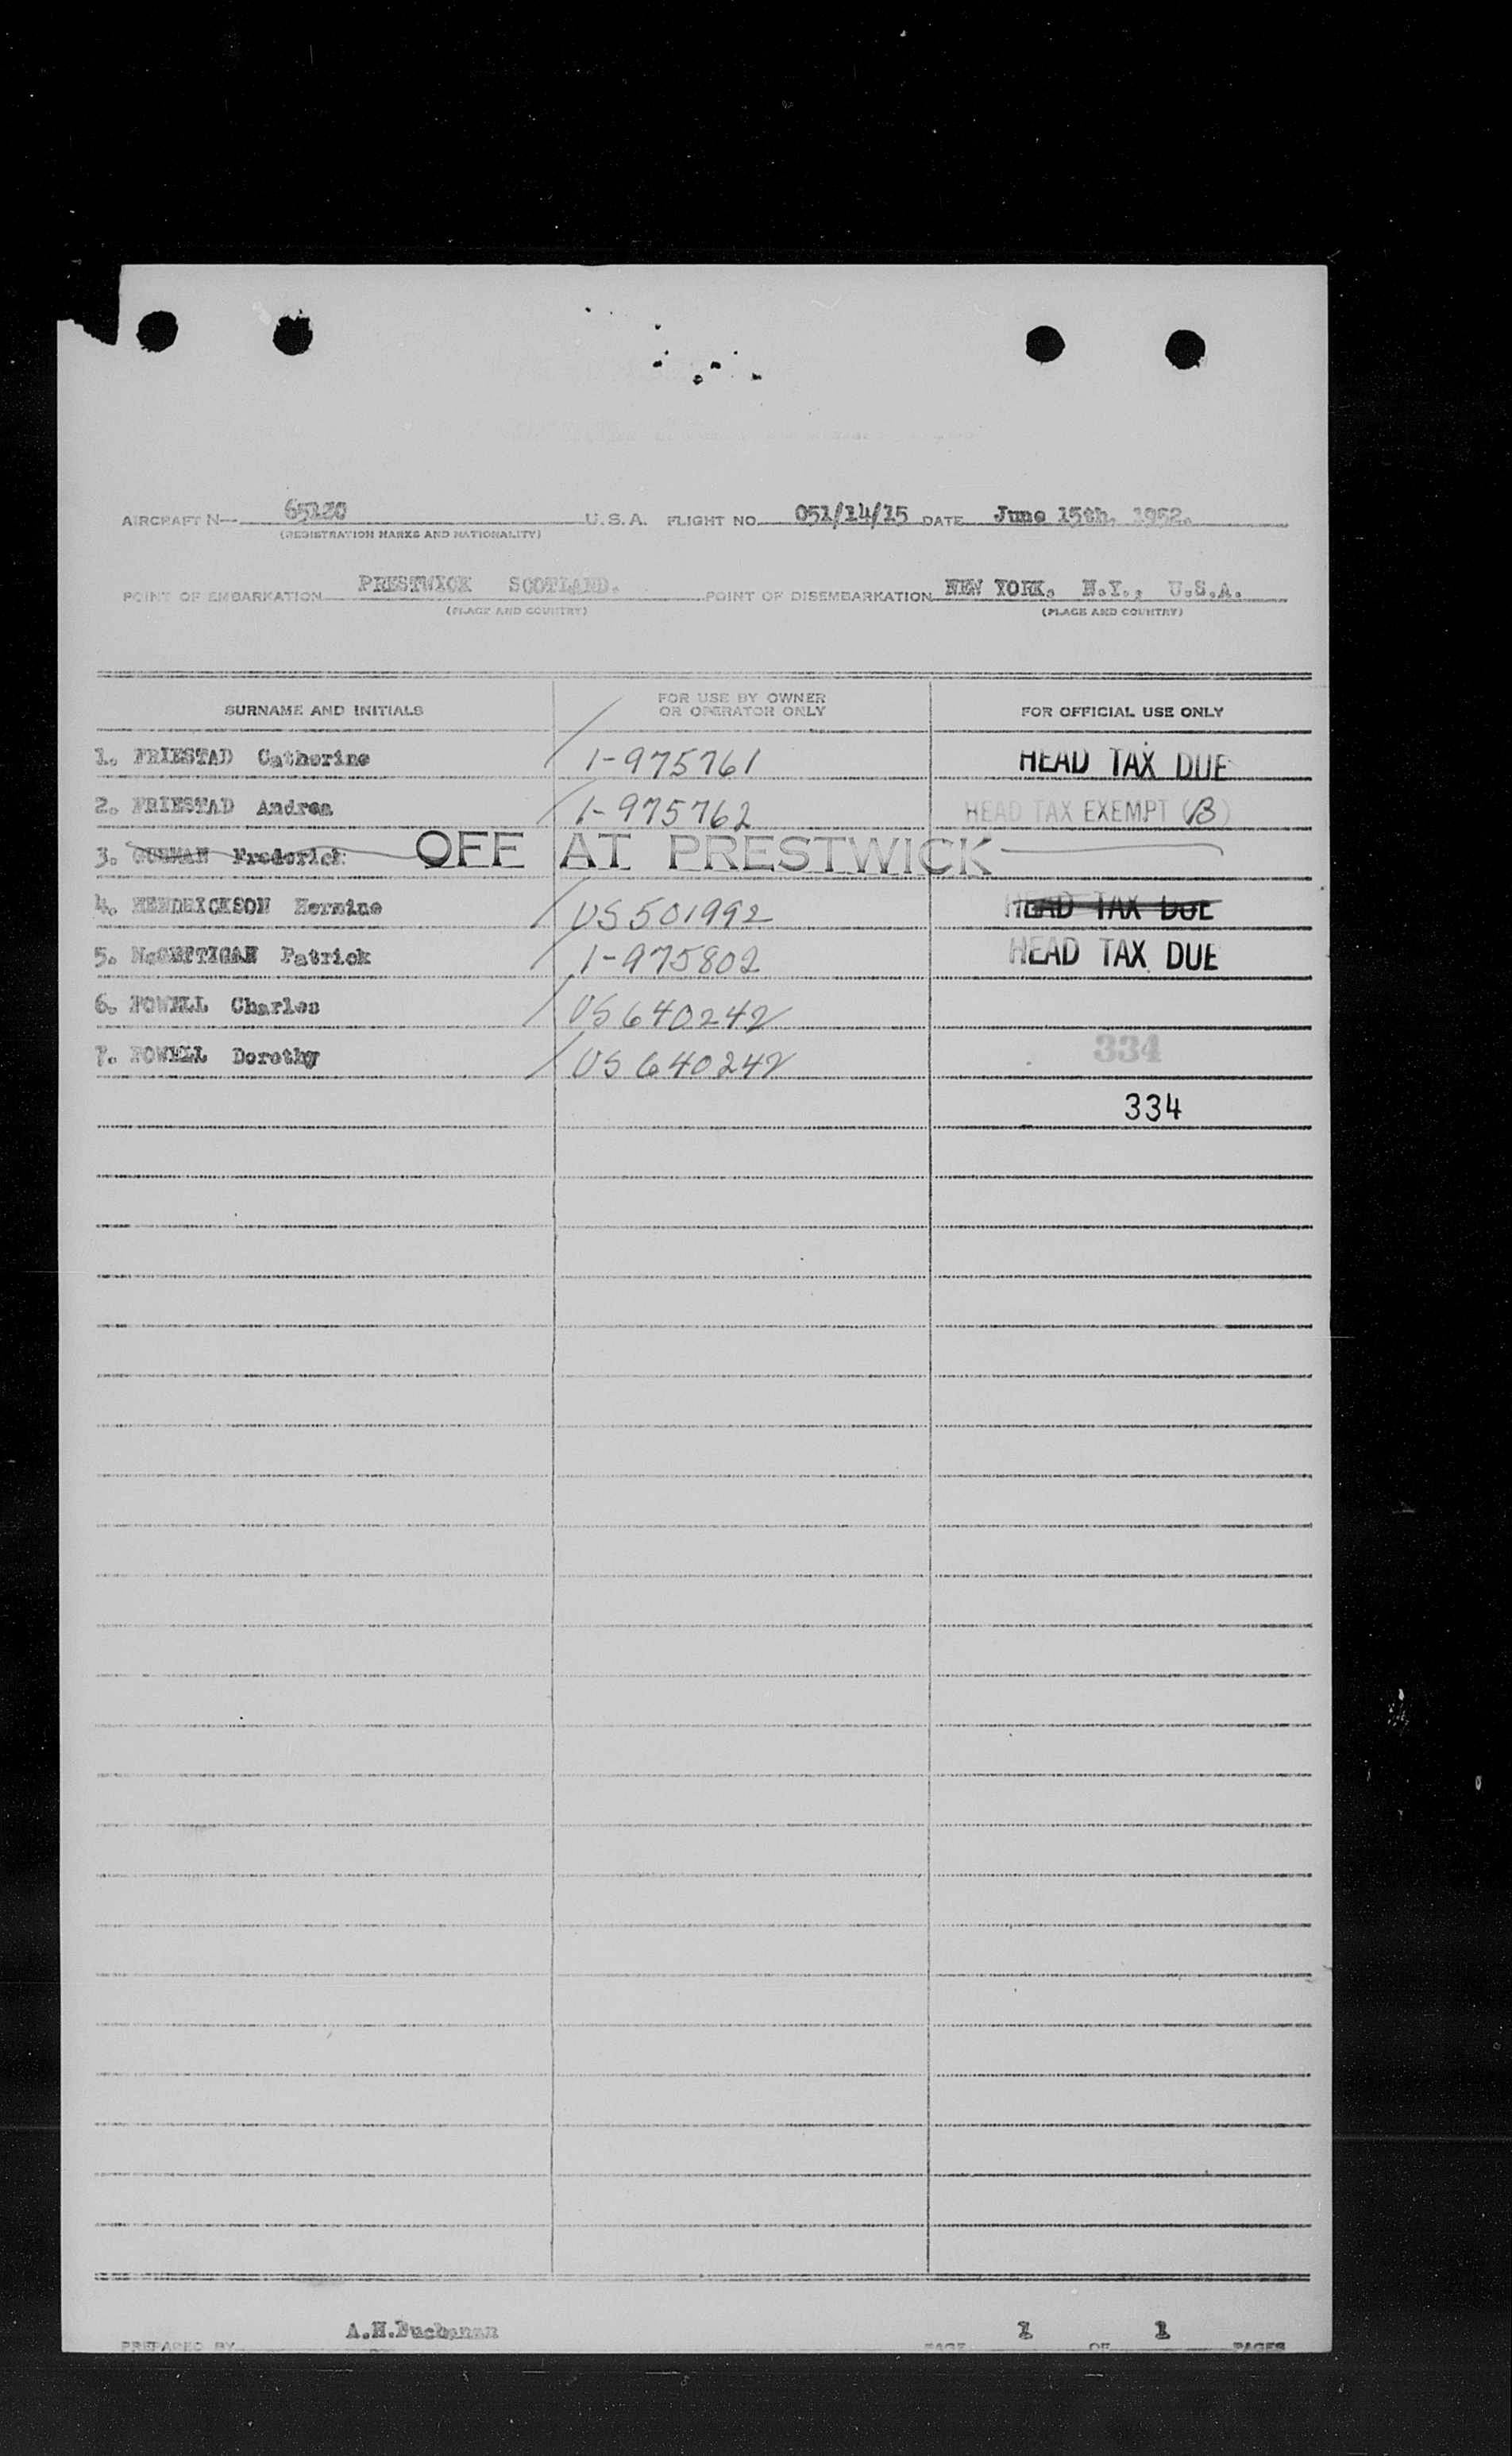 AIRCRAFT N- 65120 U.S.A. FLIGHT NO. 051/14/15 DATE June 15th. 1952.
(REGISTRATION MARKS AND NATIONALITY)
POINT OF EMBARKATION PRESTWICK SCOTLAND. POINT OF DISEMBARKATION NEW YORK. N.Y., U.S.A.
(PLACE AND COUNTRY) (PLACE AND COUNTRY)
SURNAME AND INITIALS FOR USE BY OWNER OR OPERATOR ONLY FOR OFFICIAL USE ONLY
1. FRIESTAD Catherine 1-975761 HEAD TAX DUE
2. FRIESTAD Andrea 1-975762 HEAD TAX EXEMPT (B)
3. Frederick OFF AT PRESTWICK
4. HENDRICKSON Hermine US501992 HEAD TAX DUE
5. McGETTIGAN Patrick 1-975802 HEAD TAX DUE
6. POWELL Charles US640242
7. POWELL Dorothy US640242 334
334
PREPARED BY A.H.Buchanan PAGE 1 OF 1 PAGES